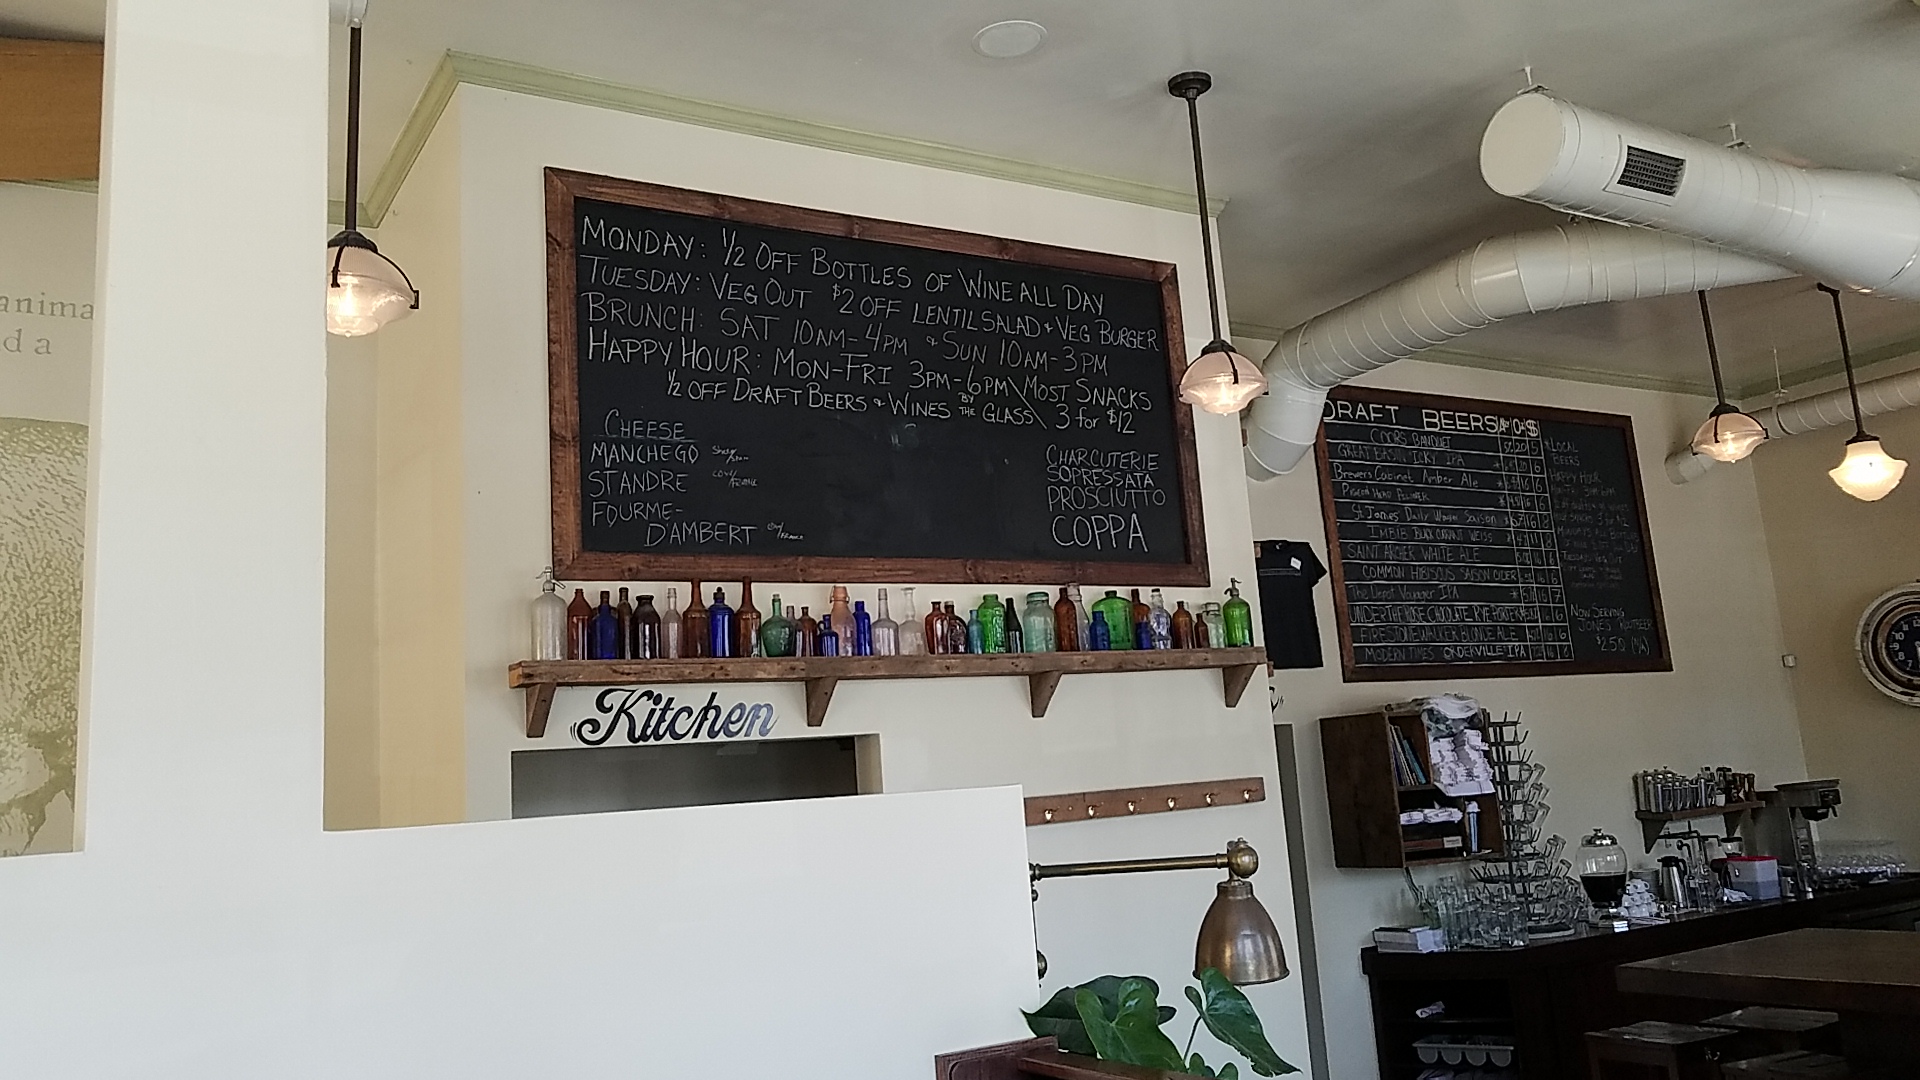 anima
d a
MONDAY: 1/2 OFF BOTTLES OF WINE ALL DAY
TUESDAY: VEG OUT $2 OFF LENTIL SALAD + VEG BURGER
BRUNCH: SAT 10AM-4PM + SUN 10AM-3PM
HAPPY HOUR: MON-FRI 3PM-6PM \ MOST SNACKS
1/2 OFF DRAFT BEERS + WINES BY THE GLASS \ 3 for $12
CHEESE
MANCHEGO
ST ANDRE
FOURME-
D'AMBERT
CHARCUTERIE
SOPRESSATA
PROSCIUTTO
COPPA
Kitchen
DRAFT BEERS
COORS BANQUET
GREAT BASIN ICKY IPA
Brewers Cabinet Amber Ale
PIGEON HEAD PILSNER
St. James Daily Wages Saison
IMBIB BLACK CURRANT WEISS
SAINT ARCHER WHITE ALE
COMMON HIBISCUS SAISON CIDER
The Depot Voyager IPA
FIRESTONE WALKER BLONDE ALE
MODERN TIMES ORDERVILLE IPA
LOCAL
BEERS
HAPPY HOUR
NOW SERVING
JONES ROOTBEER
$2.50